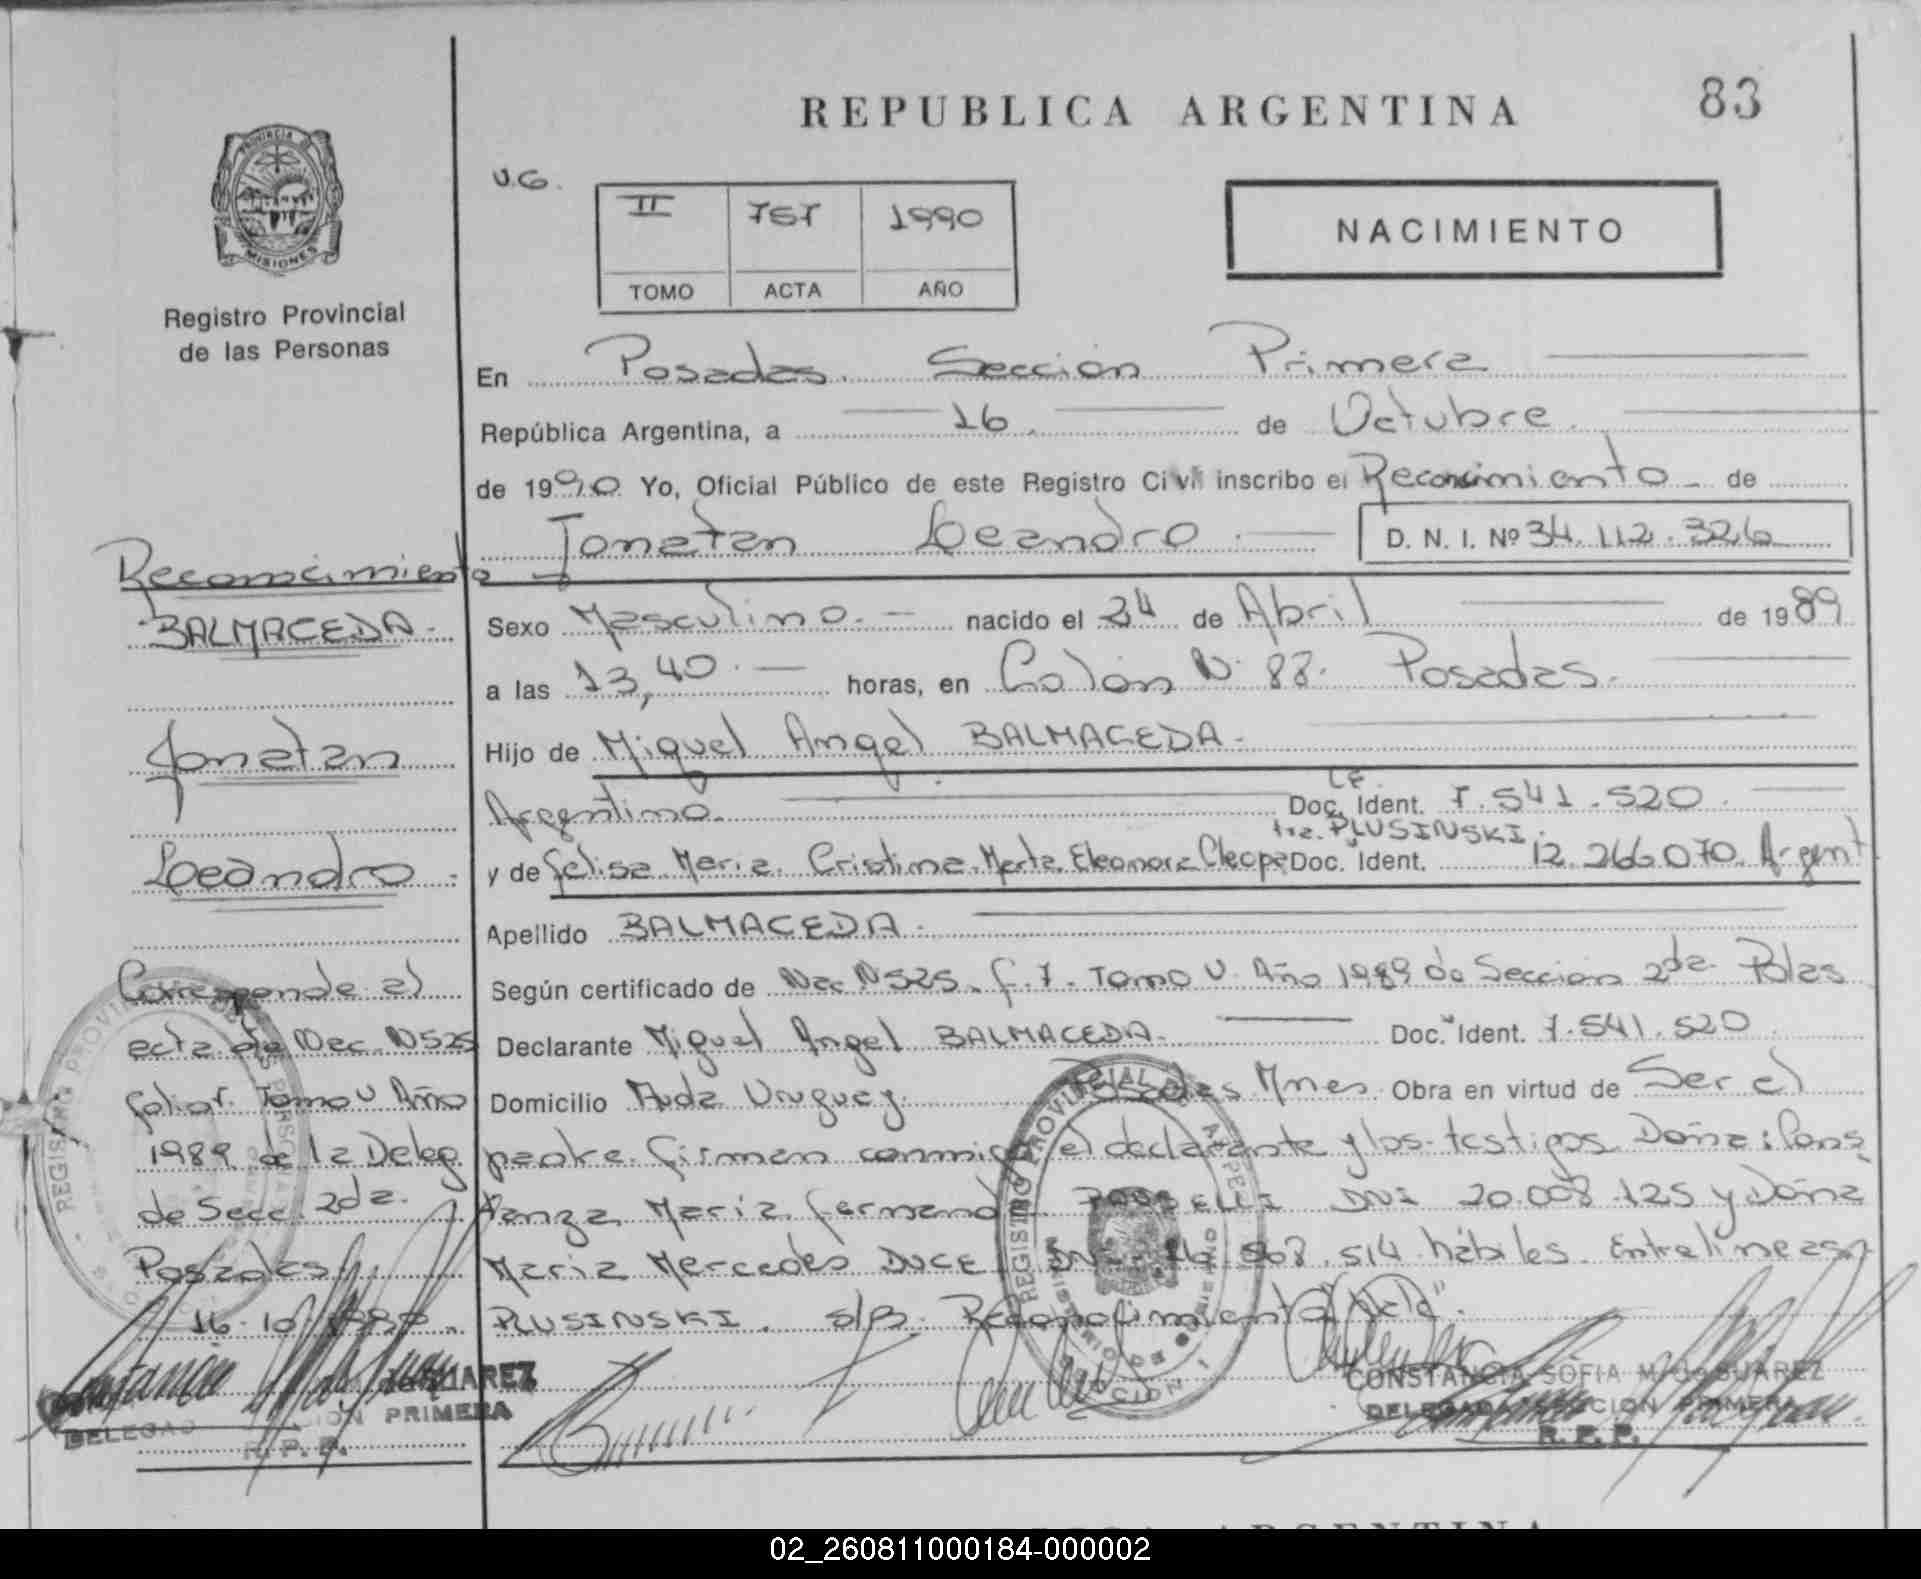 REPUBLICA ARGENTINA
83
PROVINCIA
MISIONES
Registro Provincial
de las Personas
U.G.
II 757 1990
TOMO ACTA AÑO
NACIMIENTO
En Posadas. Sección Primera
República Argentina, a 16 de Octubre.
de 1990 Yo, Oficial Público de este Registro Civil inscribo el Reconocimiento de
Jonatan Leandro. D. N. I. Nº 34.112.326
Sexo Masculino. nacido el 24 de Abril de 1989
a las 13,40. horas, en Colón N. 88. Posadas.
Hijo de Miguel Angel BALMACEDA.
L.E.
Argentino. Doc. Ident. 7.541.520.
tra. PLUSINSKI
y de Felisa Maria. Cristina. Marta. Eleonora Cleopa Doc. Ident. 12.266.070. Argent
Apellido BALMACEDA.
Según certificado de Nac N 525. F. 7. Tomo V. Año 1989 de Sección 2da. Pdas
Declarante Miguel Angel BALMACEDA. Doc. Ident. 7.541.520
Domicilio Avda Uruguay. Posadas Mnes. Obra en virtud de Ser el
padre. Firman conmigo el declarante y los testigos Doña: Cons
tanza Maria Fernanda DNI 20.008.125 y Doña
Maria Mercedes DUCE DNI 508.514 hábiles. Entrelineas:
PLUSINSKI. s/B. Reconocimiento "Vale".
Reconocimiento
BALMACEDA.
Jonatan
Leandro
Corresponde al
acta de Nac. N 525
folio 7. Tomo V Año
1989 de la Deleg
de Secc. 2da.
Posadas
16-10
SUAREZ
PRIMERA
R. P. P.
REGISTRO PROVINCIAL
CONSTANCIA SOFIA M. de SUAREZ
DELEGADA SECCION PRIMERA
R. P. P.
ARGENTINA
02_260811000184-000002